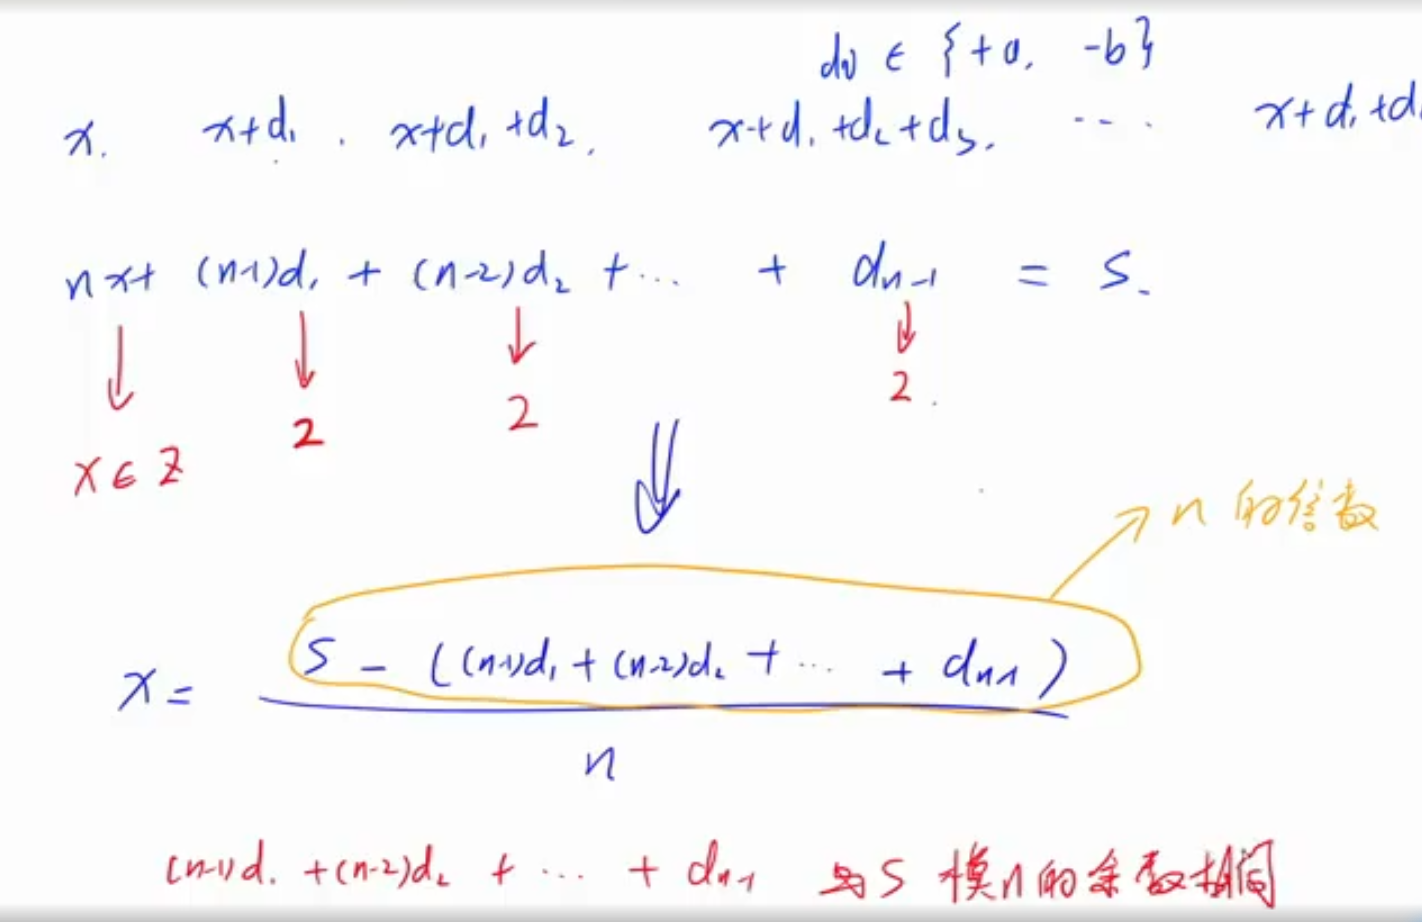 d₍ᵢ₎ ∈ {+a, -b}
x. x+d₁. x+d₁+d₂. x+d₁+d₂+d₃. .... x+d₁+d
nx+ (n-1)d₁ + (n-2)d₂ + ... + dₙ₋₁ = S.
2
2
2.
x∈Z
n 的倍数
x= S - ((n-1)d₁ + (n-2)d₂ + ... + dₙ₋₁) / n
(n-1)d₁ + (n-2)d₂ + ... + dₙ₋₁ 与 S 模 n 的余数相同